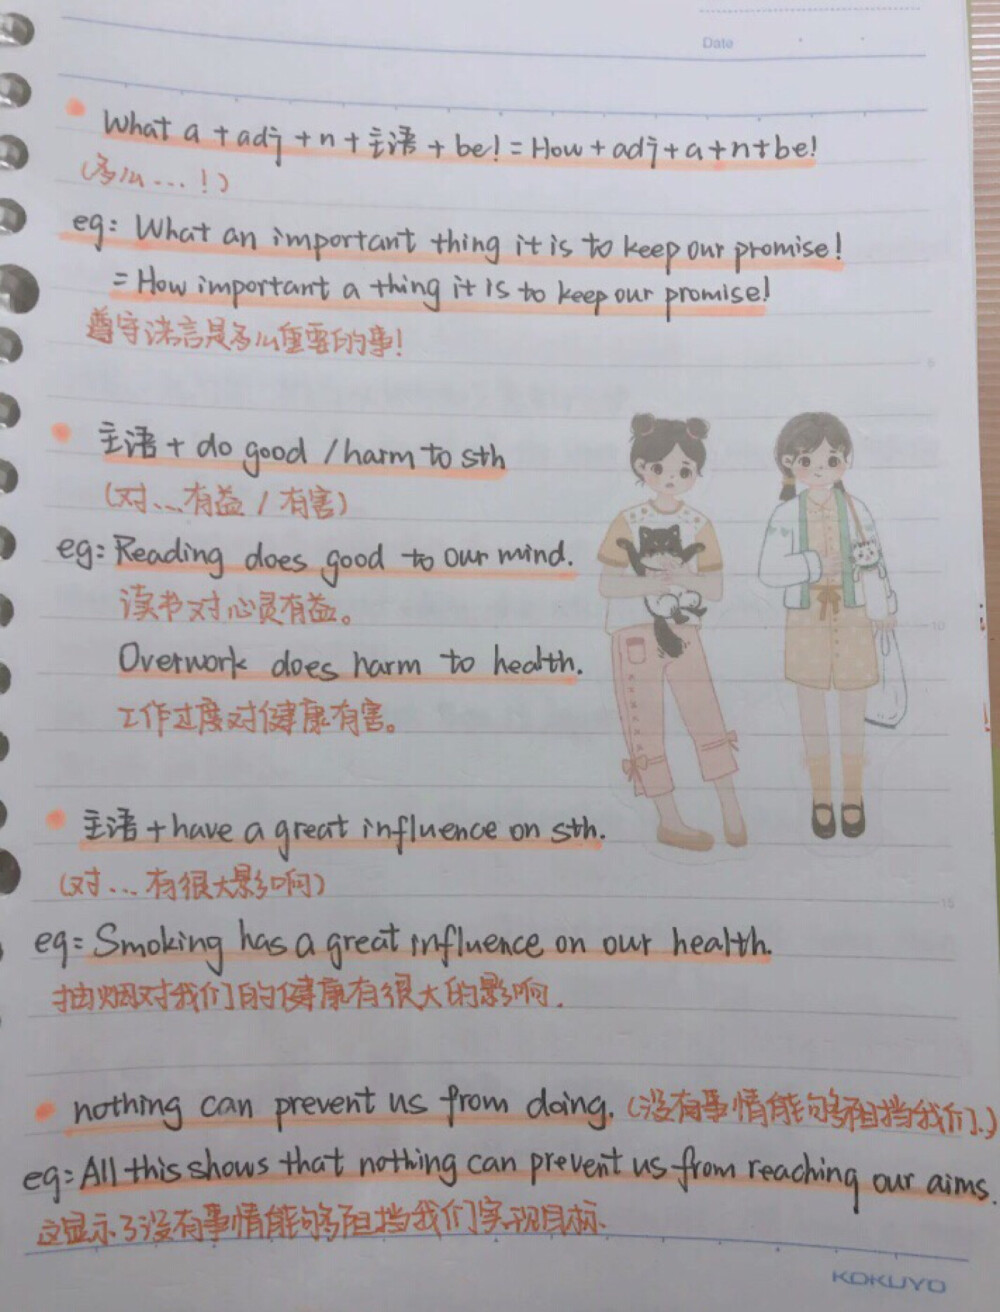 Date
What a + adj + n + 主语 + be! = How + adj + a + n + be!
(多么...!)
eg: What an important thing it is to keep our promise!
= How important a thing it is to keep our promise!
遵守诺言是多么重要的事!
5
主语 + do good / harm to sth
(对...有益 / 有害)
eg: Reading does good to our mind.
读书对心灵有益。
10
Overwork does harm to health.
工作过度对健康有害。
主语 + have a great influence on sth.
(对...有很大影响)
15
eg: Smoking has a great influence on our health.
抽烟对我们的健康有很大的影响.
nothing can prevent us from doing. (没有事情能够阻挡我们.)
eg: All this shows that nothing can prevent us from reaching our aims.
这显示了没有事情能够阻挡我们实现目标.
KOKUYO